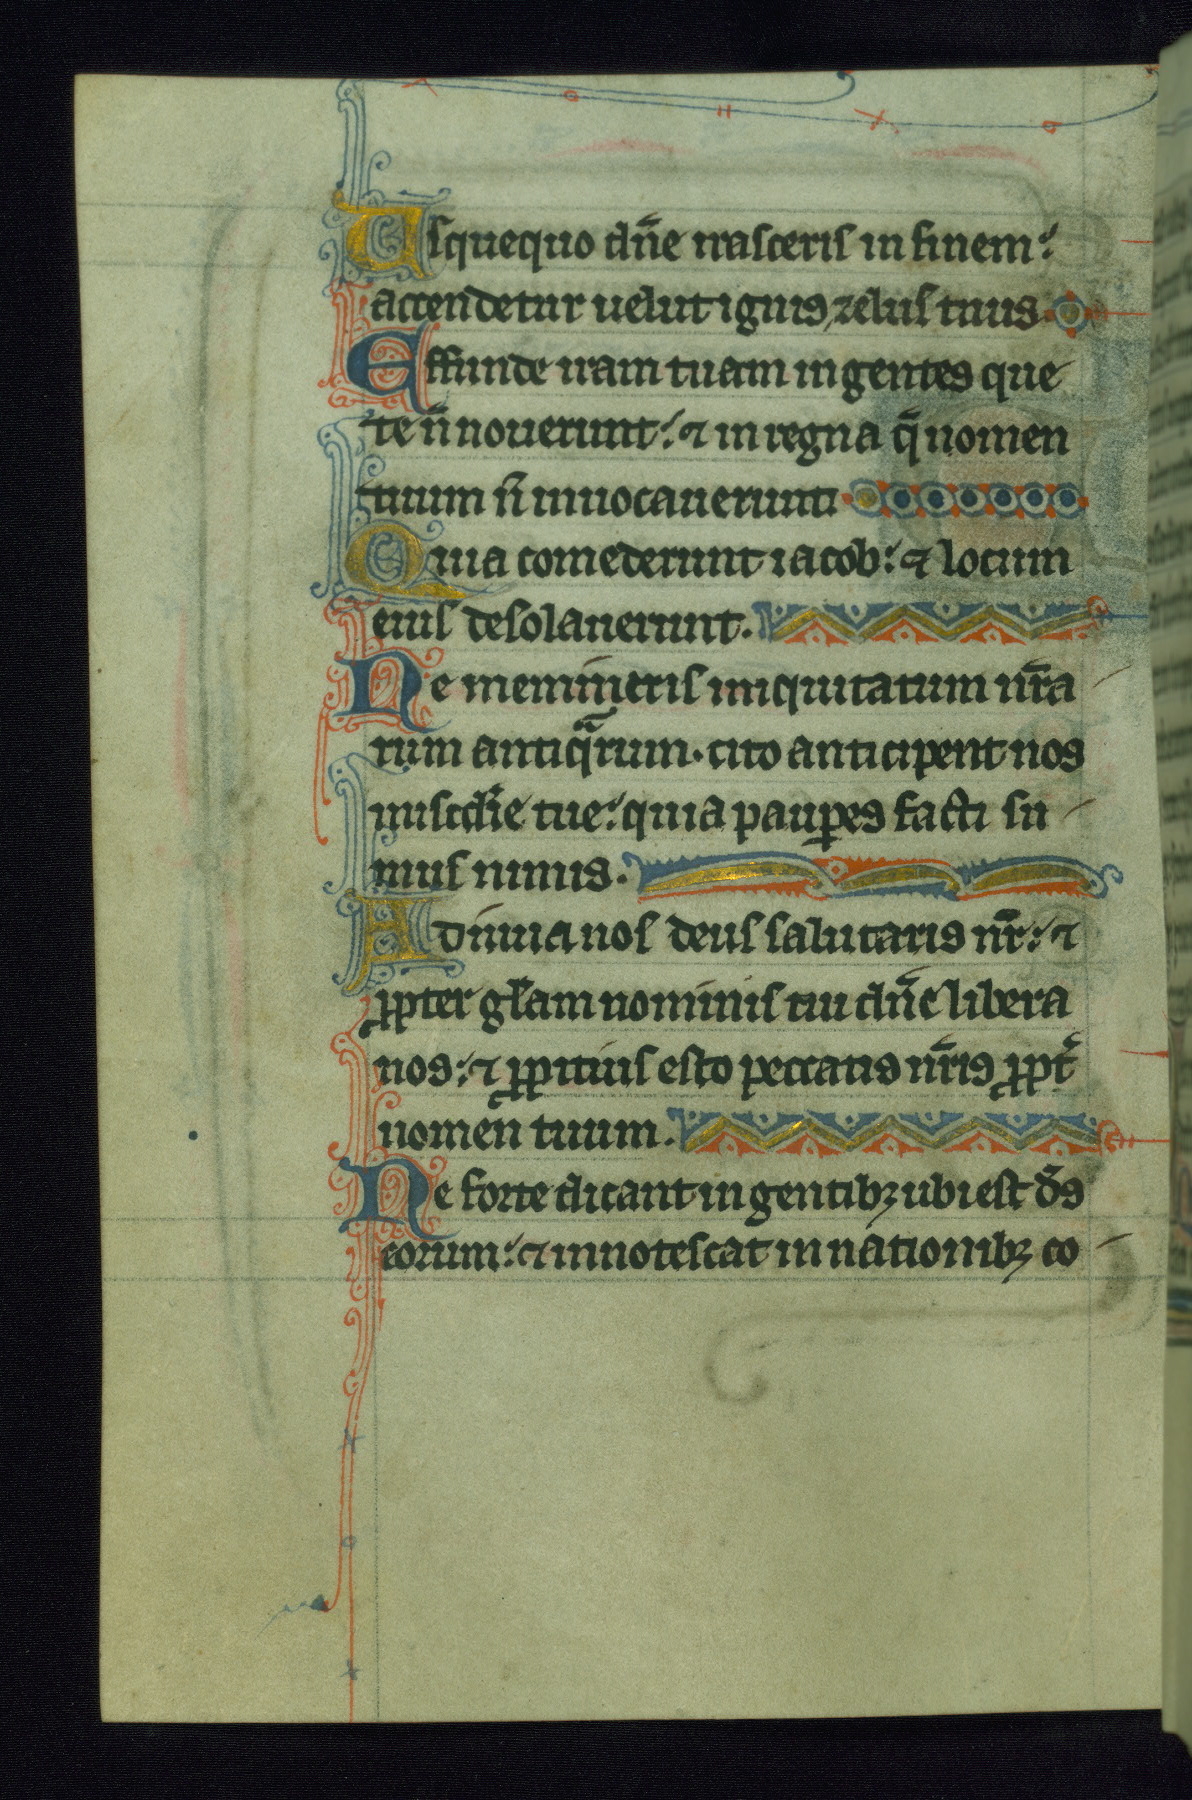 Usquequo dñe irasceris in finem:
accendetur uelut ignis zelus tuus.
Effunde iram tuam in gentes que
te ñ nouerunt: ⁊ in regna q̃ nomen
tuum ñ inuocauerunt.
Quia comederunt iacob: ⁊ locum
eius desolauerunt.
Ne memineris iniquitatum nr̃a
rum antiqͣrum. cito anticipent nos
misc̄die tue: quia paup̲es facti su
mus nimis.
Adiuua nos deus salutaris nr̃: ⁊
ꝓpter gl̃am nominis tui dñe libera
nos: ⁊ ꝓpitius esto peccatis nr̃is ꝓpt̛
nomen tuum.
Ne forte dicant in gentibꝫ ubi est d̃s
eorum: ⁊ innotescat in nationibꝫ co